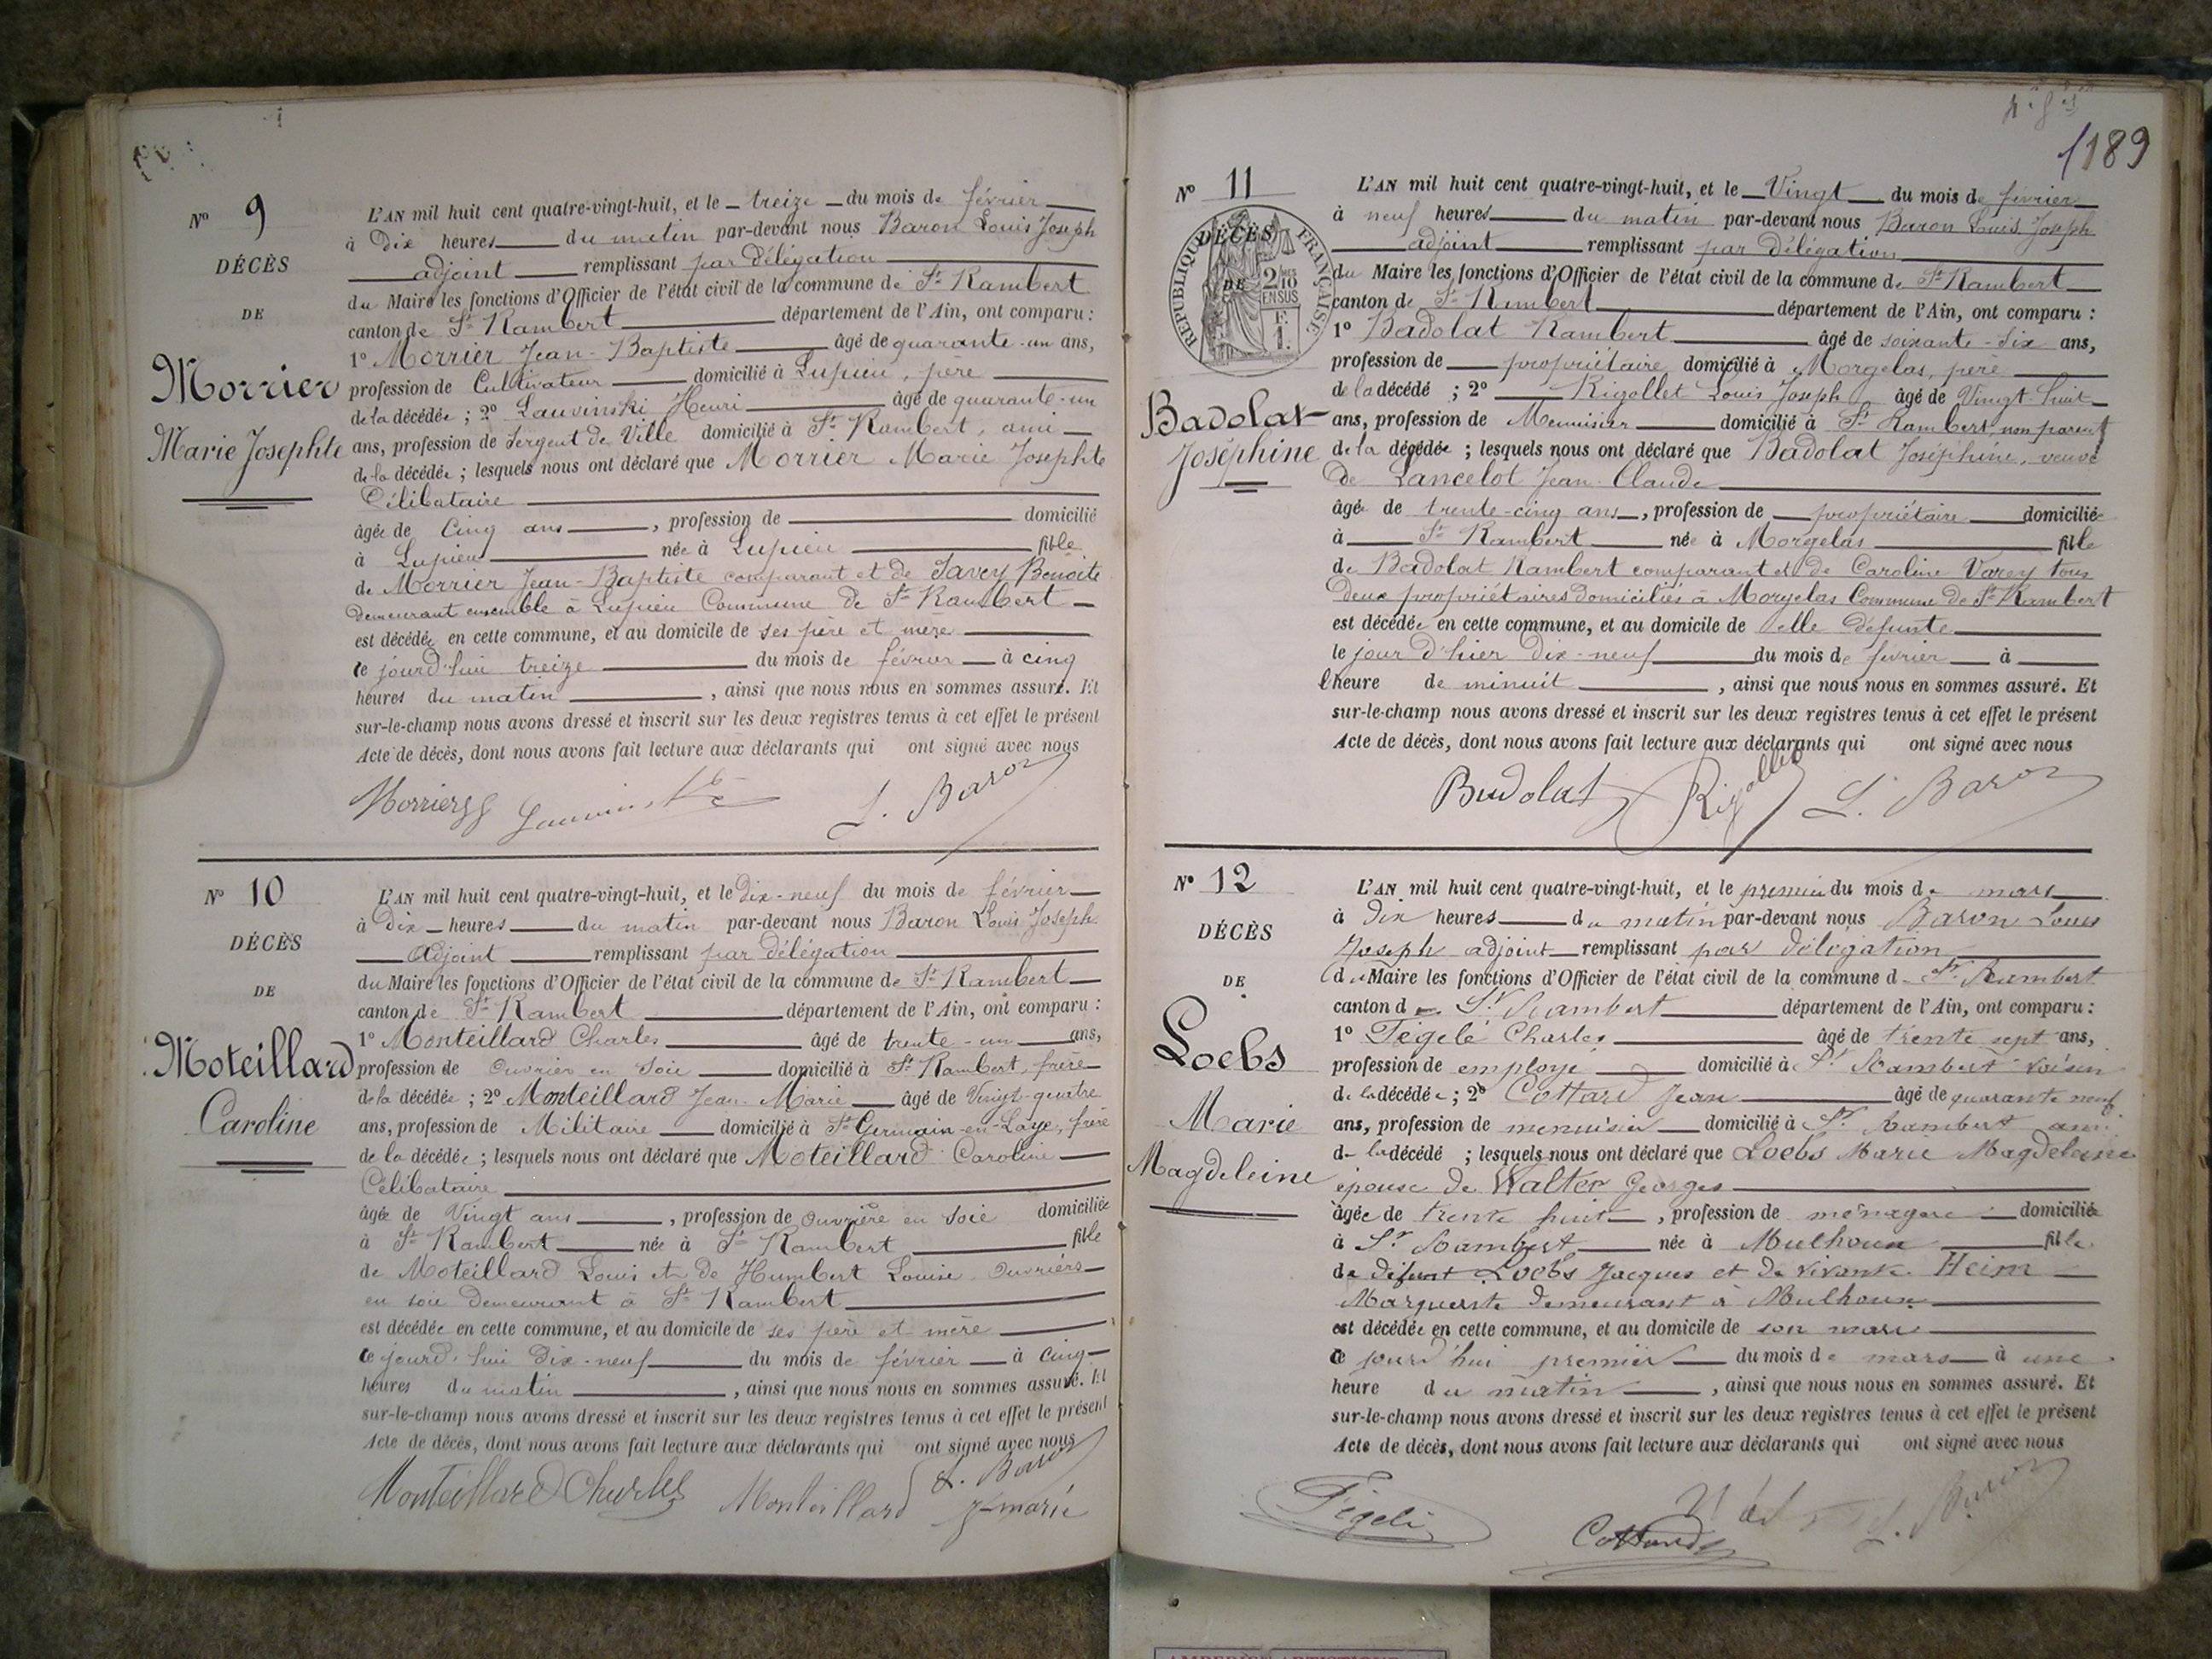 N° 9
DÉCÈS
DE
Morrier
Marie Josephte
L'AN mil huit cent quatre-vingt-huit, et le treize du mois de février
à Dix heures du matin par-devant nous Baron Louis Joseph
adjoint remplissant par délégation
du Maire les fonctions d'Officier de l'état civil de la commune de St Rambert
canton de St Rambert département de l'Ain, ont comparu :
1° Morrier Jean-Baptiste âgé de quarante-un ans,
profession de Cultivateur domicilié à Lupieu, père
de la décédée ; 2° Lauvinski Henri âgé de quarante-un
ans, profession de Sergent de Ville domicilié à St Rambert, ami
de la décédée ; lesquels nous ont déclaré que Morrier Marie Josephte
Célibataire
âgée de Cinq ans, profession de domicilié
à Lupieu née à Lupieu fille
de Morrier Jean-Baptiste comparant et de Savey Benoite
demeurant ensemble à Lupieu Commune de St Rambert
est décédée en cette commune, et au domicile de ses père et mère
ce jourd'hui treize du mois de février à cinq
heures du matin, ainsi que nous nous en sommes assuré. Et
sur-le-champ nous avons dressé et inscrit sur les deux registres tenus à cet effet le présent
Acte de décès, dont nous avons fait lecture aux déclarants qui ont signé avec nous
Morrier L. Baron
N° 10
DÉCÈS
DE
Moteillard
Caroline
L'AN mil huit cent quatre-vingt-huit, et le Dix-neuf du mois de février
à Dix heures du matin par-devant nous Baron Louis Joseph
Adjoint remplissant par délégation
du Maire les fonctions d'Officier de l'état civil de la commune de St Rambert
canton de St Rambert département de l'Ain, ont comparu :
1° Monteillard Charles âgé de trente-un ans,
profession de Ouvrier en Soie domicilié à St Rambert, frère
de la décédée ; 2° Monteillard Jean Marie âgé de Vingt-quatre
ans, profession de Militaire domicilié à St Germain-en-Laye, frère
de la décédée ; lesquels nous ont déclaré que Moteillard Caroline
Célibataire
âgée de Vingt ans, profession de Ouvrière en Soie domiciliée
à St Rambert née à St Rambert fille
de Moteillard Louis et de Humbert Louise Ouvriers
en soie demeurant à St Rambert
est décédée en cette commune, et au domicile de ses père et mère
ce jourd'hui Dix-neuf du mois de février à cinq
heures du matin, ainsi que nous nous en sommes assuré. Et
sur-le-champ nous avons dressé et inscrit sur les deux registres tenus à cet effet le présent
Acte de décès, dont nous avons fait lecture aux déclarants qui ont signé avec nous
Monteillard Charles Monteillard L. Baron
J-marie
189
N° 11
RÉPUBLIQUE FRANÇAISE
2/10 EN SUS
F. 1.
DÉCÈS
DE
Badolat
Joséphine
L'AN mil huit cent quatre-vingt-huit, et le Vingt du mois de février
à neuf heures du matin par-devant nous Baron Louis Joseph
adjoint remplissant par délégation
du Maire les fonctions d'Officier de l'état civil de la commune de St Rambert
canton de St Rambert département de l'Ain, ont comparu :
1° Badolat Rambert âgé de soixante-dix ans,
profession de propriétaire domicilié à Morgelas, père
de la décédé ; 2° Rigollet Louis Joseph âgé de Vingt-huit
ans, profession de Menuisier domicilié à St Rambert, non parent
de la décédée ; lesquels nous ont déclaré que Badolat Joséphine, veuve
de Lancelot Jean-Claude
âgée de trente-cinq ans, profession de propriétaire domiciliée
à St Rambert née à Morgelas fille
de Badolat Rambert comparant et de Caroline Varey tous
deux propriétaires domiciliés à Morgelas Commune de St Rambert
est décédée en cette commune, et au domicile de elle défunte
le jour d'hier Dix-neuf du mois de février à
l'heure de minuit, ainsi que nous nous en sommes assuré. Et
sur-le-champ nous avons dressé et inscrit sur les deux registres tenus à cet effet le présent
Acte de décès, dont nous avons fait lecture aux déclarants qui ont signé avec nous
Badolat Rigollet L. Baron
N° 12
DÉCÈS
DE
Loebs
Marie
Magdeleine
L'AN mil huit cent quatre-vingt-huit, et le premier du mois de mars
à Dix heures du matin par-devant nous Baron Louis
Joseph adjoint remplissant par délégation
du Maire les fonctions d'Officier de l'état civil de la commune d St Rambert
canton de St Rambert département de l'Ain, ont comparu :
1° Tégelé Charles âgé de trente sept ans,
profession de employé domicilié à St Rambert voisin
de la décédée ; 2° Cottard Jean âgé de quarante neuf
ans, profession de menuisier domicilié à St Rambert ami
de la décédé ; lesquels nous ont déclaré que Loebs Marie Magdeleine
épouse de Walter Georges
âgée de trente huit, profession de ménagère domiciliée
à St Rambert née à Mulhouse fille
de défunt Loebs Jacques et de vivante Heim
Marguerite demeurant à Mulhouse
est décédée en cette commune, et au domicile de son mari
ce jourd'hui premier du mois de mars à une
heure du matin, ainsi que nous nous en sommes assuré. Et
sur-le-champ nous avons dressé et inscrit sur les deux registres tenus à cet effet le présent
Acte de décès, dont nous avons fait lecture aux déclarants qui ont signé avec nous
Cottard L. Baron